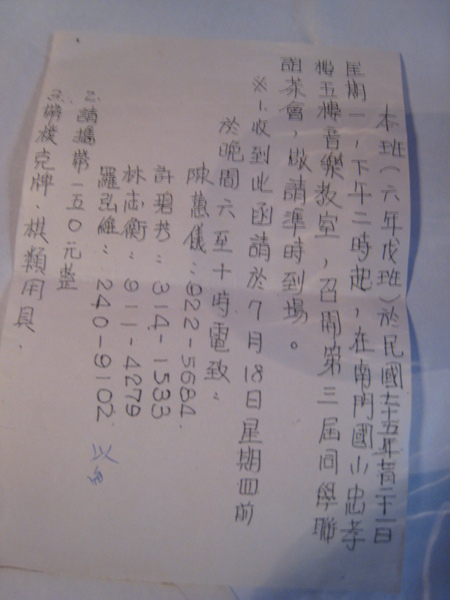 本班(六年戊班)於民國七十五年七月二十一日
星期一,下午二時起,在南門國小忠孝
樓五樓音樂教室,召開第三屆同學聯
誼茶會,敬請準時到場。
※1.收到此函請於7月18日星期四前
於晚間六至十時電致:
陳蕙儀:922-5684.
許碧芬:314-1533
林志衡:911-4279
羅弘維:240-9102
2.請攜帶一五0元整
3.帶撲克牌、棋類用具.